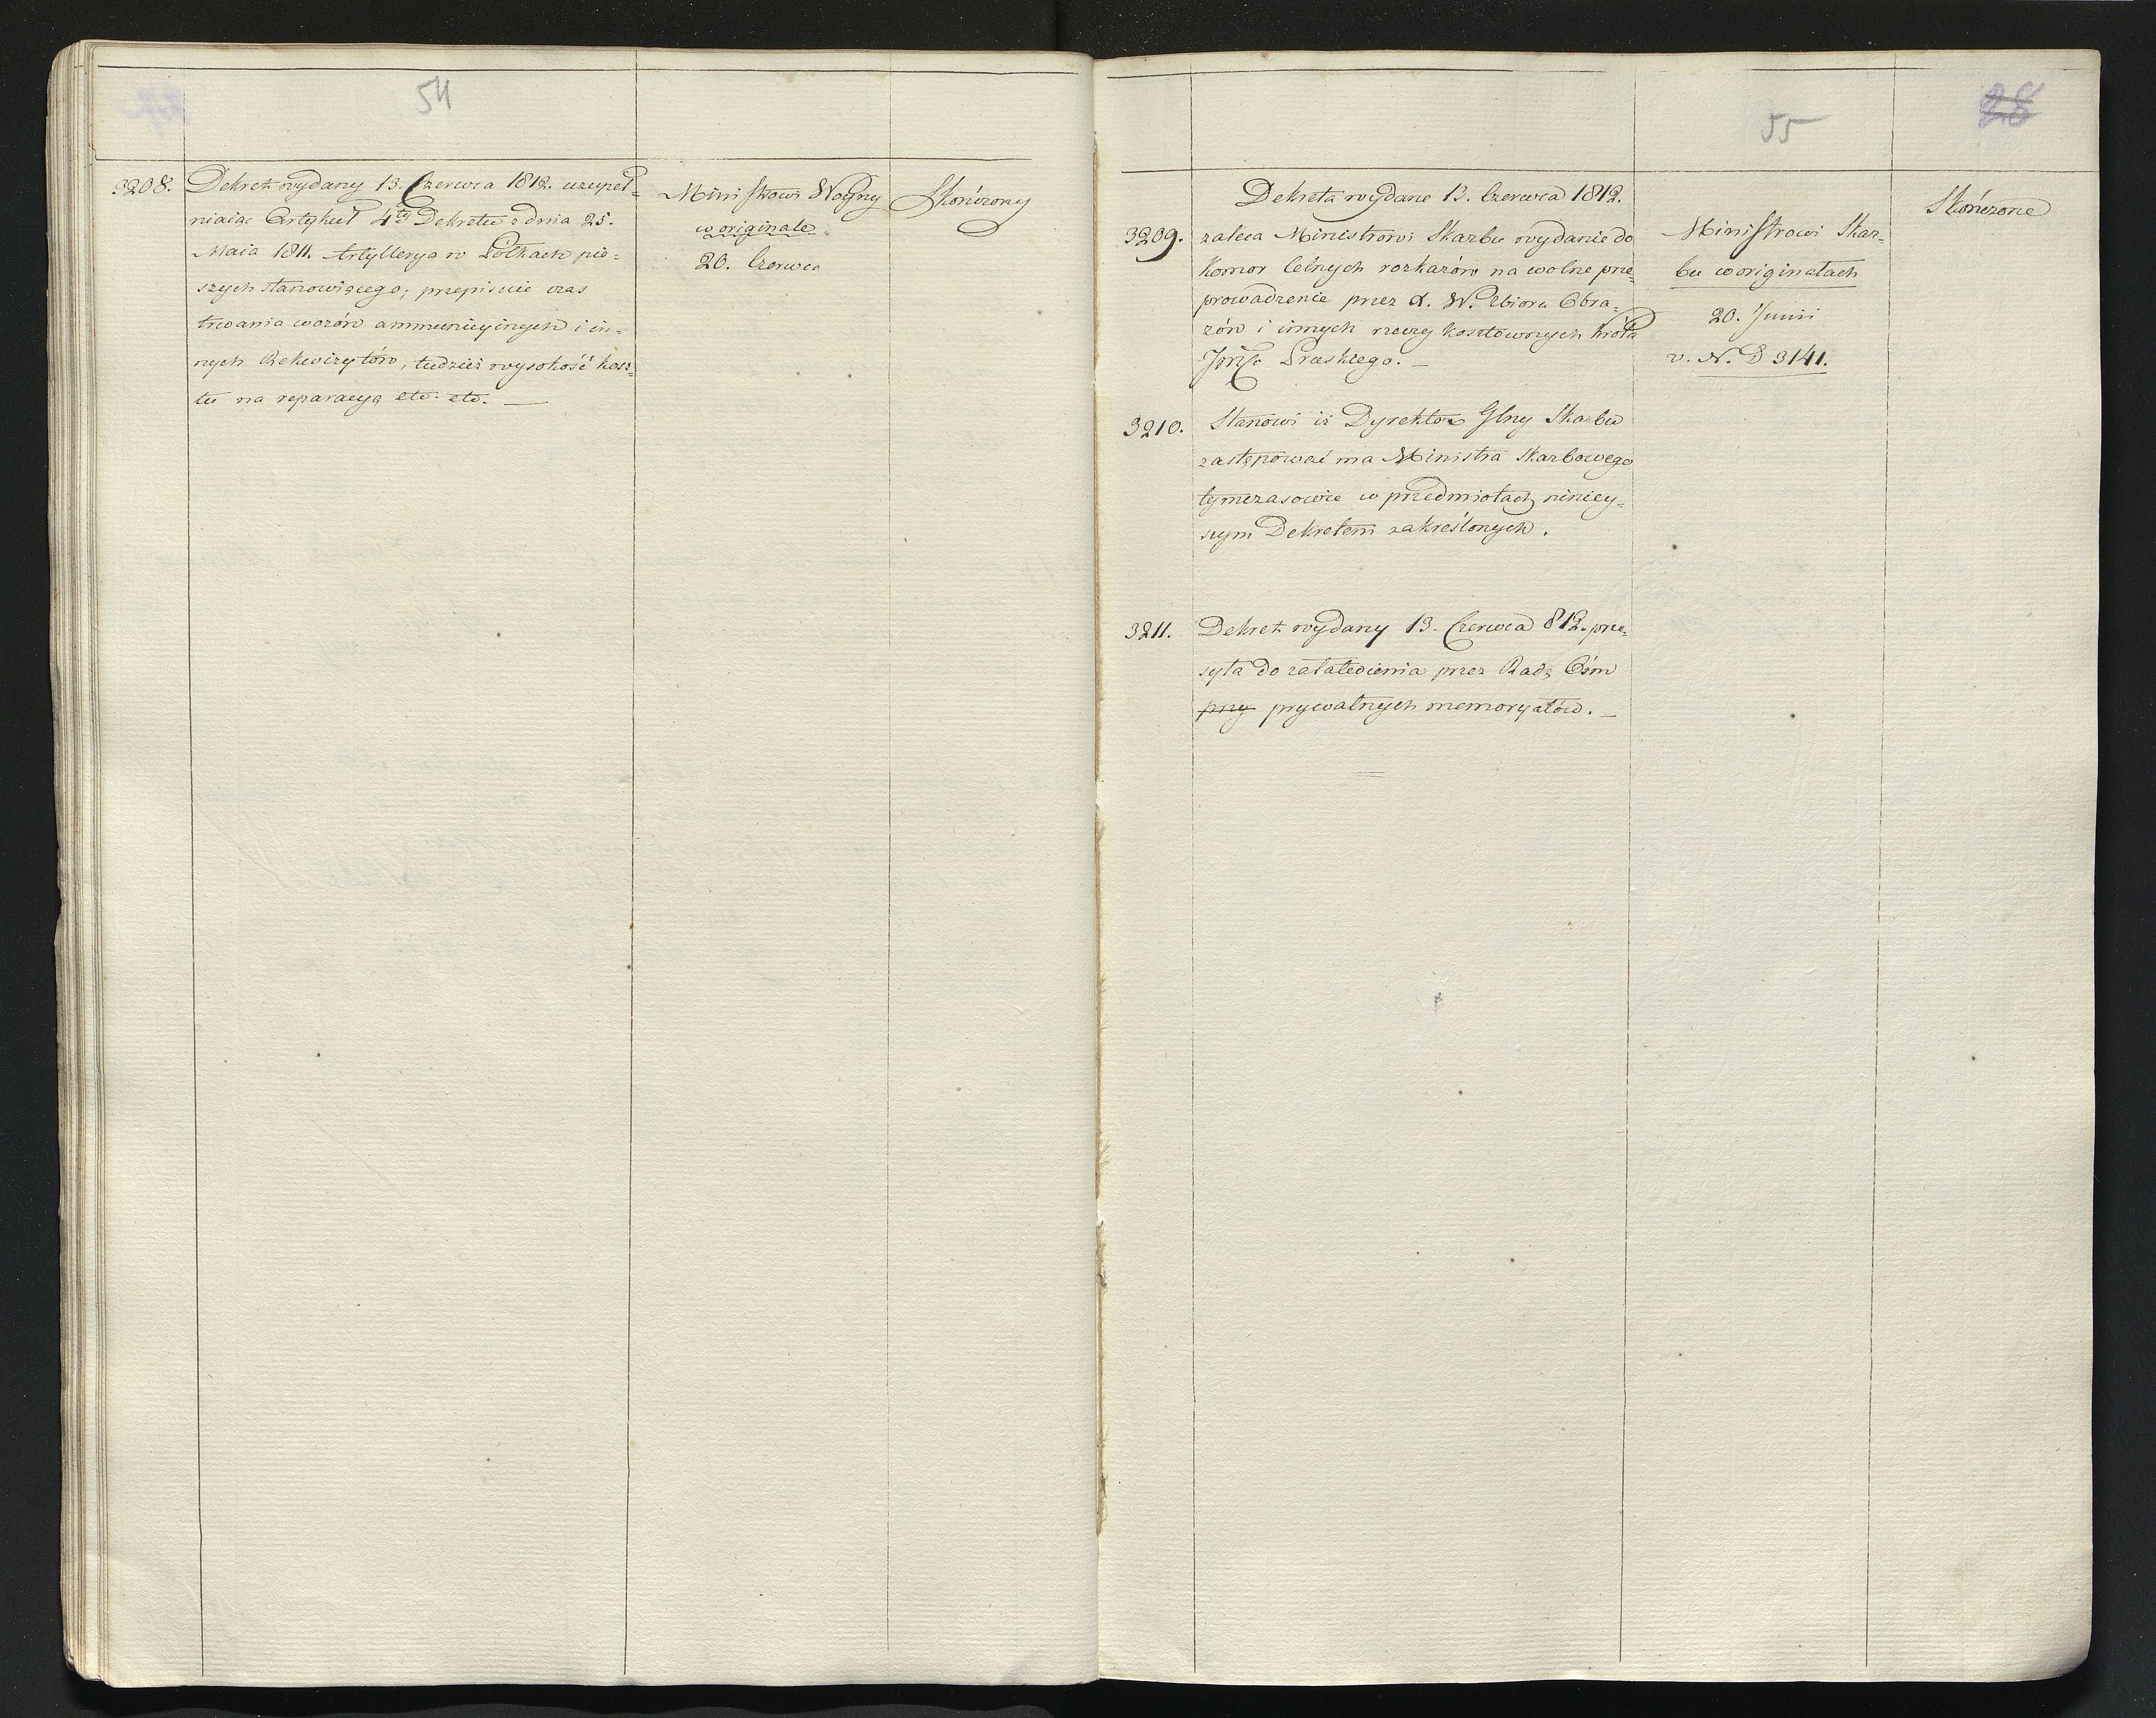 54
3208. Dekret wydany 13. Czerwca 1812. uzupeł-
niaiąc Artykuł 4ty Dekretu z dnia 25.
Maia 1811. Artylleryą w Półkach pie-
szych stanowiącego; przepisuie czas
trwania wozów ammunicyinych i in-
nych Rekwizytów, tudzież wysokość kosz-
tu na reparacyą etc. etc. —
Ministrowi Woyny
w originale
20. Czerwca
Skończony
55
28
Dekreta wydane 13. Czerwca 1812.
3209. zaleca Ministrowi Skarbu wydanie do
Komor Celnych rozkazów na wolne prze-
prowadzenie przez X. W. zbioru Obra-
zów i innych rzeczy kosztownych Króla
Jmci Pruskiego. —
3210. Stanowi iż Dyrektor Glny Skarbu
zastępować ma Ministra Skarbowego
tymczasowie w przedmiotach niniey-
szym Dekretem zakreślonych.
3211. Dekret wydany 13. Czerwca 812. prze-
syła do załatwienia przez Radę Ośm
przy prywatnych memoryałów. —
Ministrowi Skar-
bu w originałach
20. Junii
v. N. D 3141.
Skończone